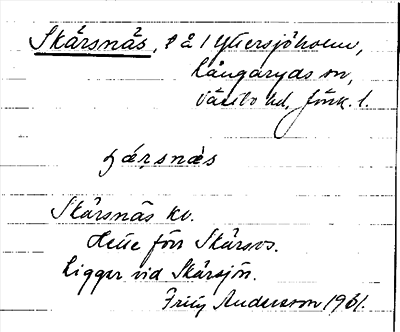 Skärsnäs, på 1 Yttersjöholm,
Långaryds sn,
Västbo hd, Jönk. l.
Skärsnäs kv.
Hette förr Skärsos.
Ligger vid Skärsjön.
Fritz Andersson 1961.